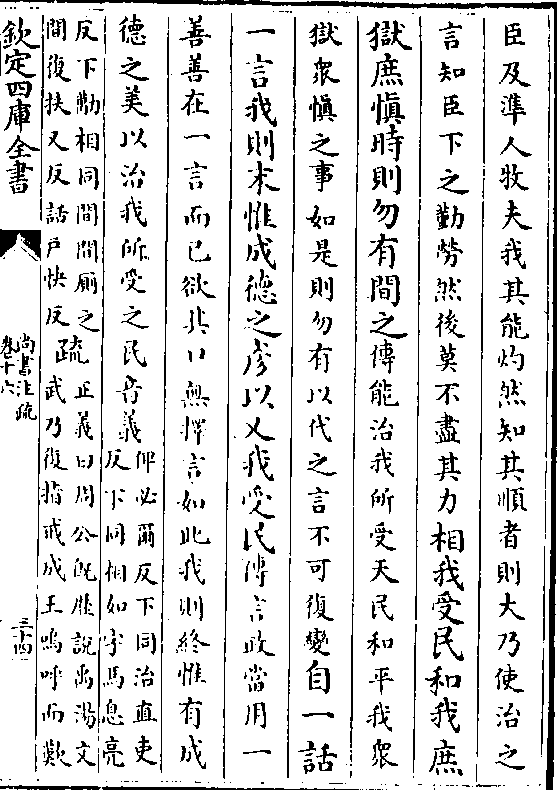 臣及準人牧夫我其能灼然知其順者則大乃使治之
言知臣下之勤勞然後莫不盡其力相我受民和我庶
獄庶慎時則勿有間之傳能治我所受天民和平我衆
獄衆慎之事如是則勿有以代之言不可復變自一話
一言我則末惟成德之彥以乂我受民傳言政當用一
善善在一言而已欲其口無擇言如此我則終惟有成
德之美以治我所受之民音義俾必爾反下同治直吏
反下同相如字馬息亮
反下勱相同間間厠之
間復扶又反話戸快反疏正義曰周公旣歴說禹湯文
武乃復指戒成王嗚呼而歎
欽定四庫全書
尚書注疏
卷十六
三十四